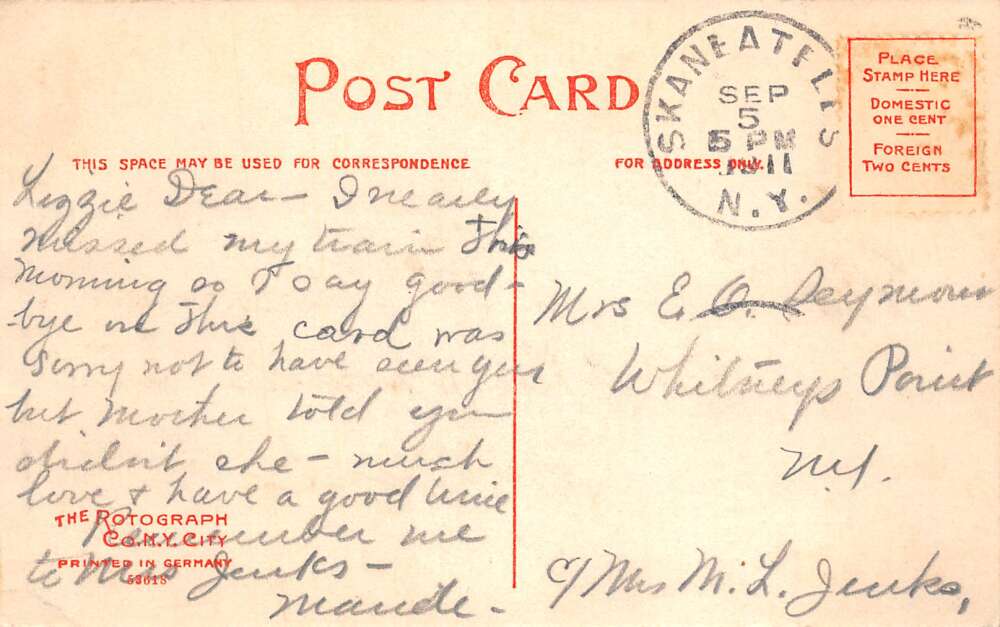 POST CARD
SKANEATELES
SEP
5
5 PM
1911
N.Y.
PLACE
STAMP HERE
DOMESTIC
ONE CENT
FOREIGN
TWO CENTS
THIS SPACE MAY BE USED FOR CORRESPONDENCE
FOR ADDRESS ONLY.
Lizzie Dear – I nearly
missed my train this
morning so I say good-
bye on this card was
sorry not to have seen you
but Mother told you
didn't she – much
love & have a good time
Remember me
to Mrs Jenks –
Maude –
THE ROTOGRAPH
CO. N.Y. CITY
PRINTED IN GERMANY
53618
Mrs E. O. Seymour
Whitneys Point
N.Y.
c/ Mrs M. L. Jenks,